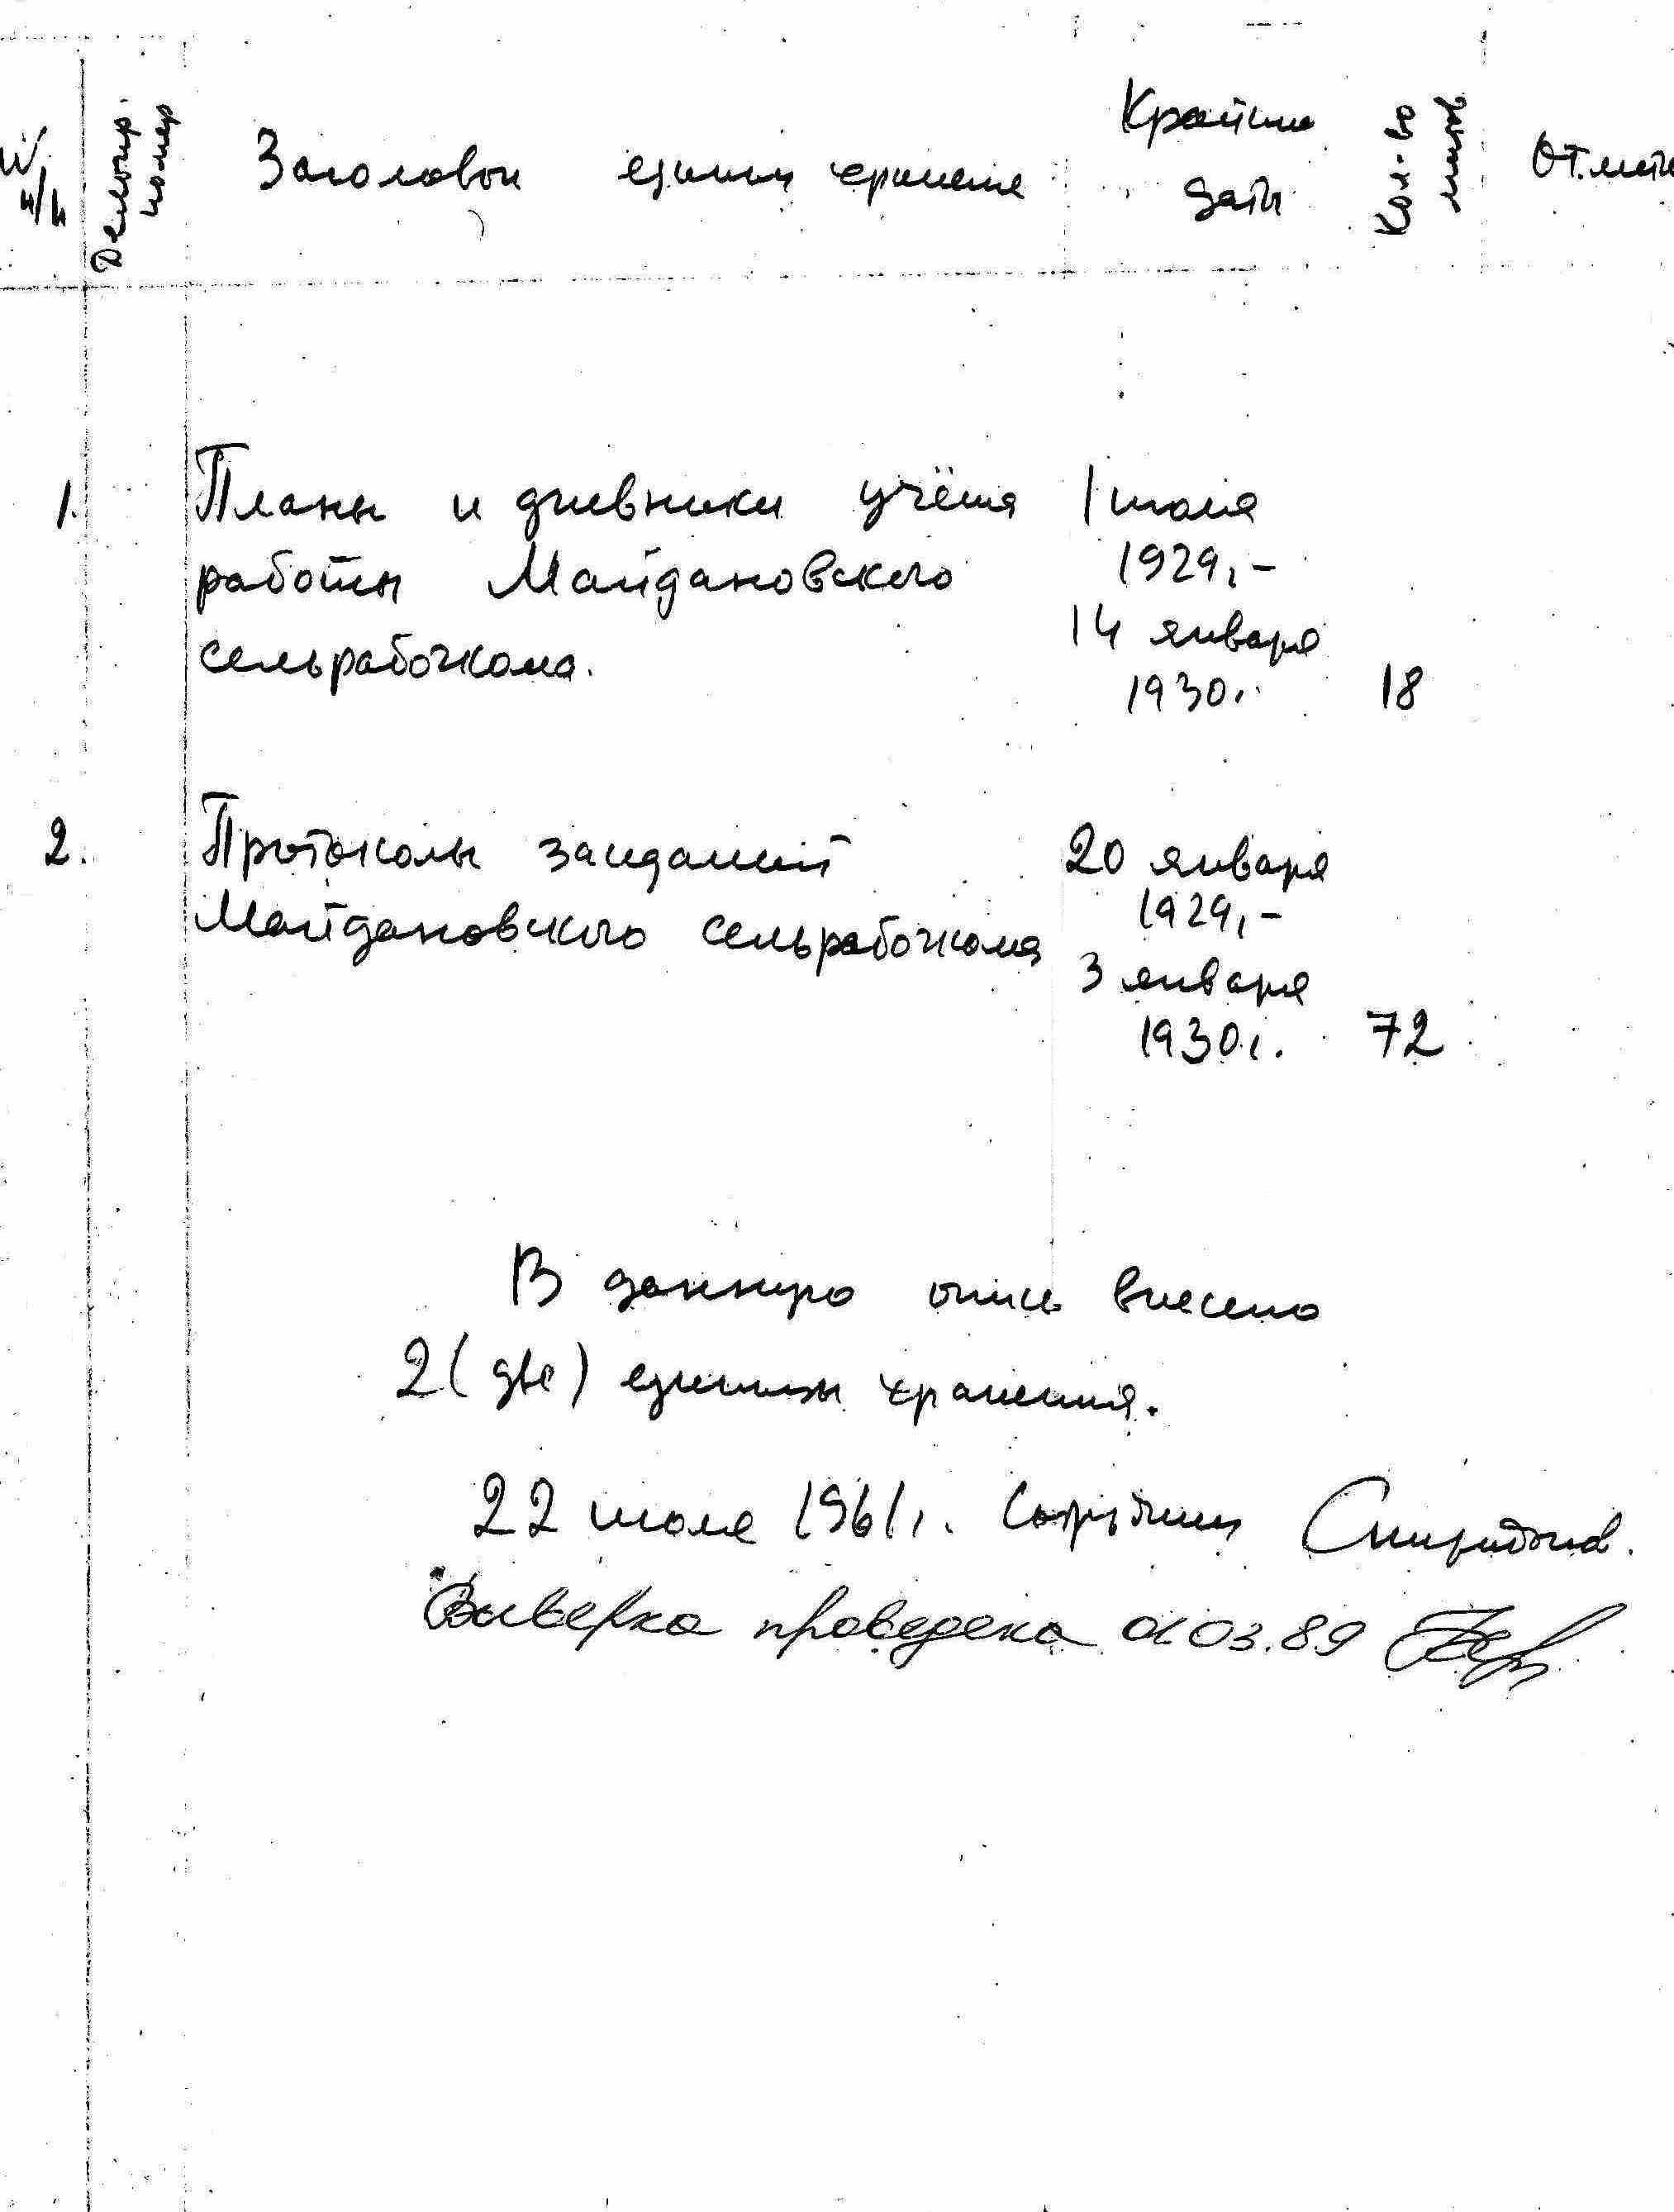 № п/п
Делопр. номер
Заголовки единиц хранения
Крайние
даты
Кол-во листов
Отмет
1.
Планы и дневники учёта
работы Майдановского
сельрабочкома.
1 июля
1929г.-
14 января
1930г.
18
2.
Протоколы заседаний
Майдановского сельрабочкома
20 января
1929г.-
3 января
1930г.
72
В данную опись внесено
2 (две) единицы хранения.
22 июля 1961г. Сотрудник Спиридонов.
Выверка проведена 01 03.89